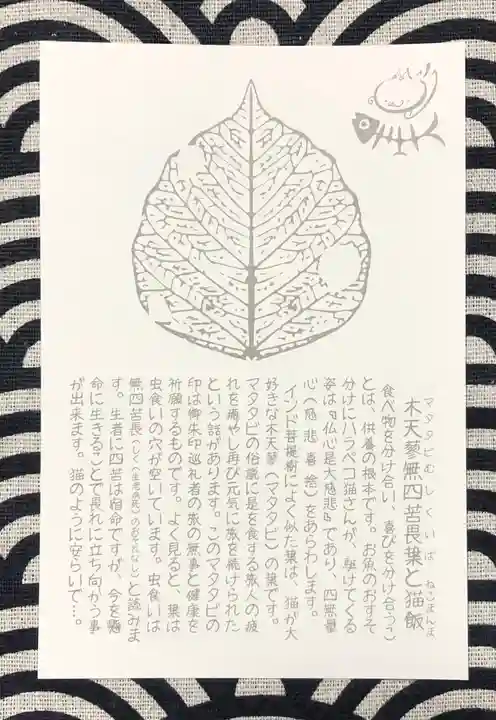 マタタビむしくいば ねこまんま
木天蓼無四苦畏葉と猫飯
食べ物を分け合い、喜びを分け合うこ
とは、供養の根本です。お魚のおすそ
分けにハラペコ猫さんが、駆けてくる
姿は『仏心是大慈悲』であり、四無量
心（慈悲喜捨）をあらわします。
インド菩提樹によく似た葉は、猫が大
好きな木天蓼（マタタビ）の葉です。
マタタビの俗説に是を食する旅人の疲
れを癒やし再び元気に旅を続けられた
という話があります。このマタタビの
印は御朱印巡礼者の旅の無事と健康を
祈願するものです。よく見ると、葉は
虫食いの穴が空いています。虫食いは
無四苦畏（しく（生老病死）のおそれなし）と読みま
す。生者に四苦は宿命ですが、今を懸
命に生きることで畏れに立ち向かう事
が出来ます。猫のように安らいで…。